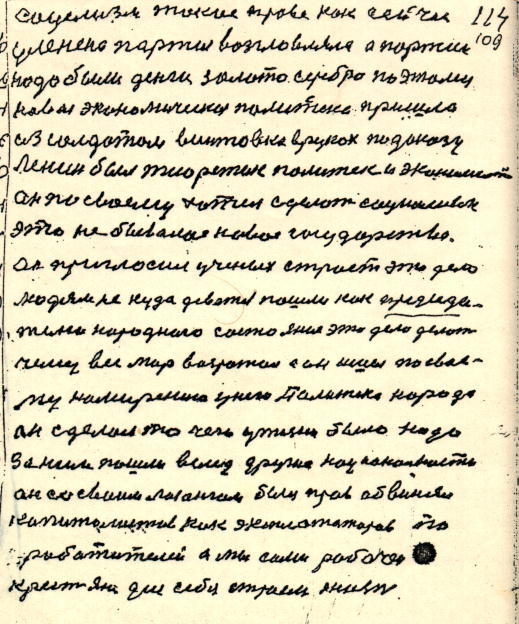 социлизм такие права как сейчас 114
у ленена партия возглавляла а партии 109
надо были денги золото серебро поэтому
новая экономическая политека пришла
с солдатом винтовка в руках
Ленин был теоретик политек и экономист
он по своему хотел сделат социализм
это не бывалое новое государство.
он пригласил ученых строст это дело
людям не куда деватся пошли как
народного это дело делат
чему вес мир возротал а он ишол по свое-
му намерению унего Палитека народа
он сделал то чего у жизни было надо
за ним пошли вслед других нацианалности
он со своим лозангом был прав обвинял
капитолистов как эксплотаторов по
работителей а мы сами рабочи
крестяни для себя строем жизн